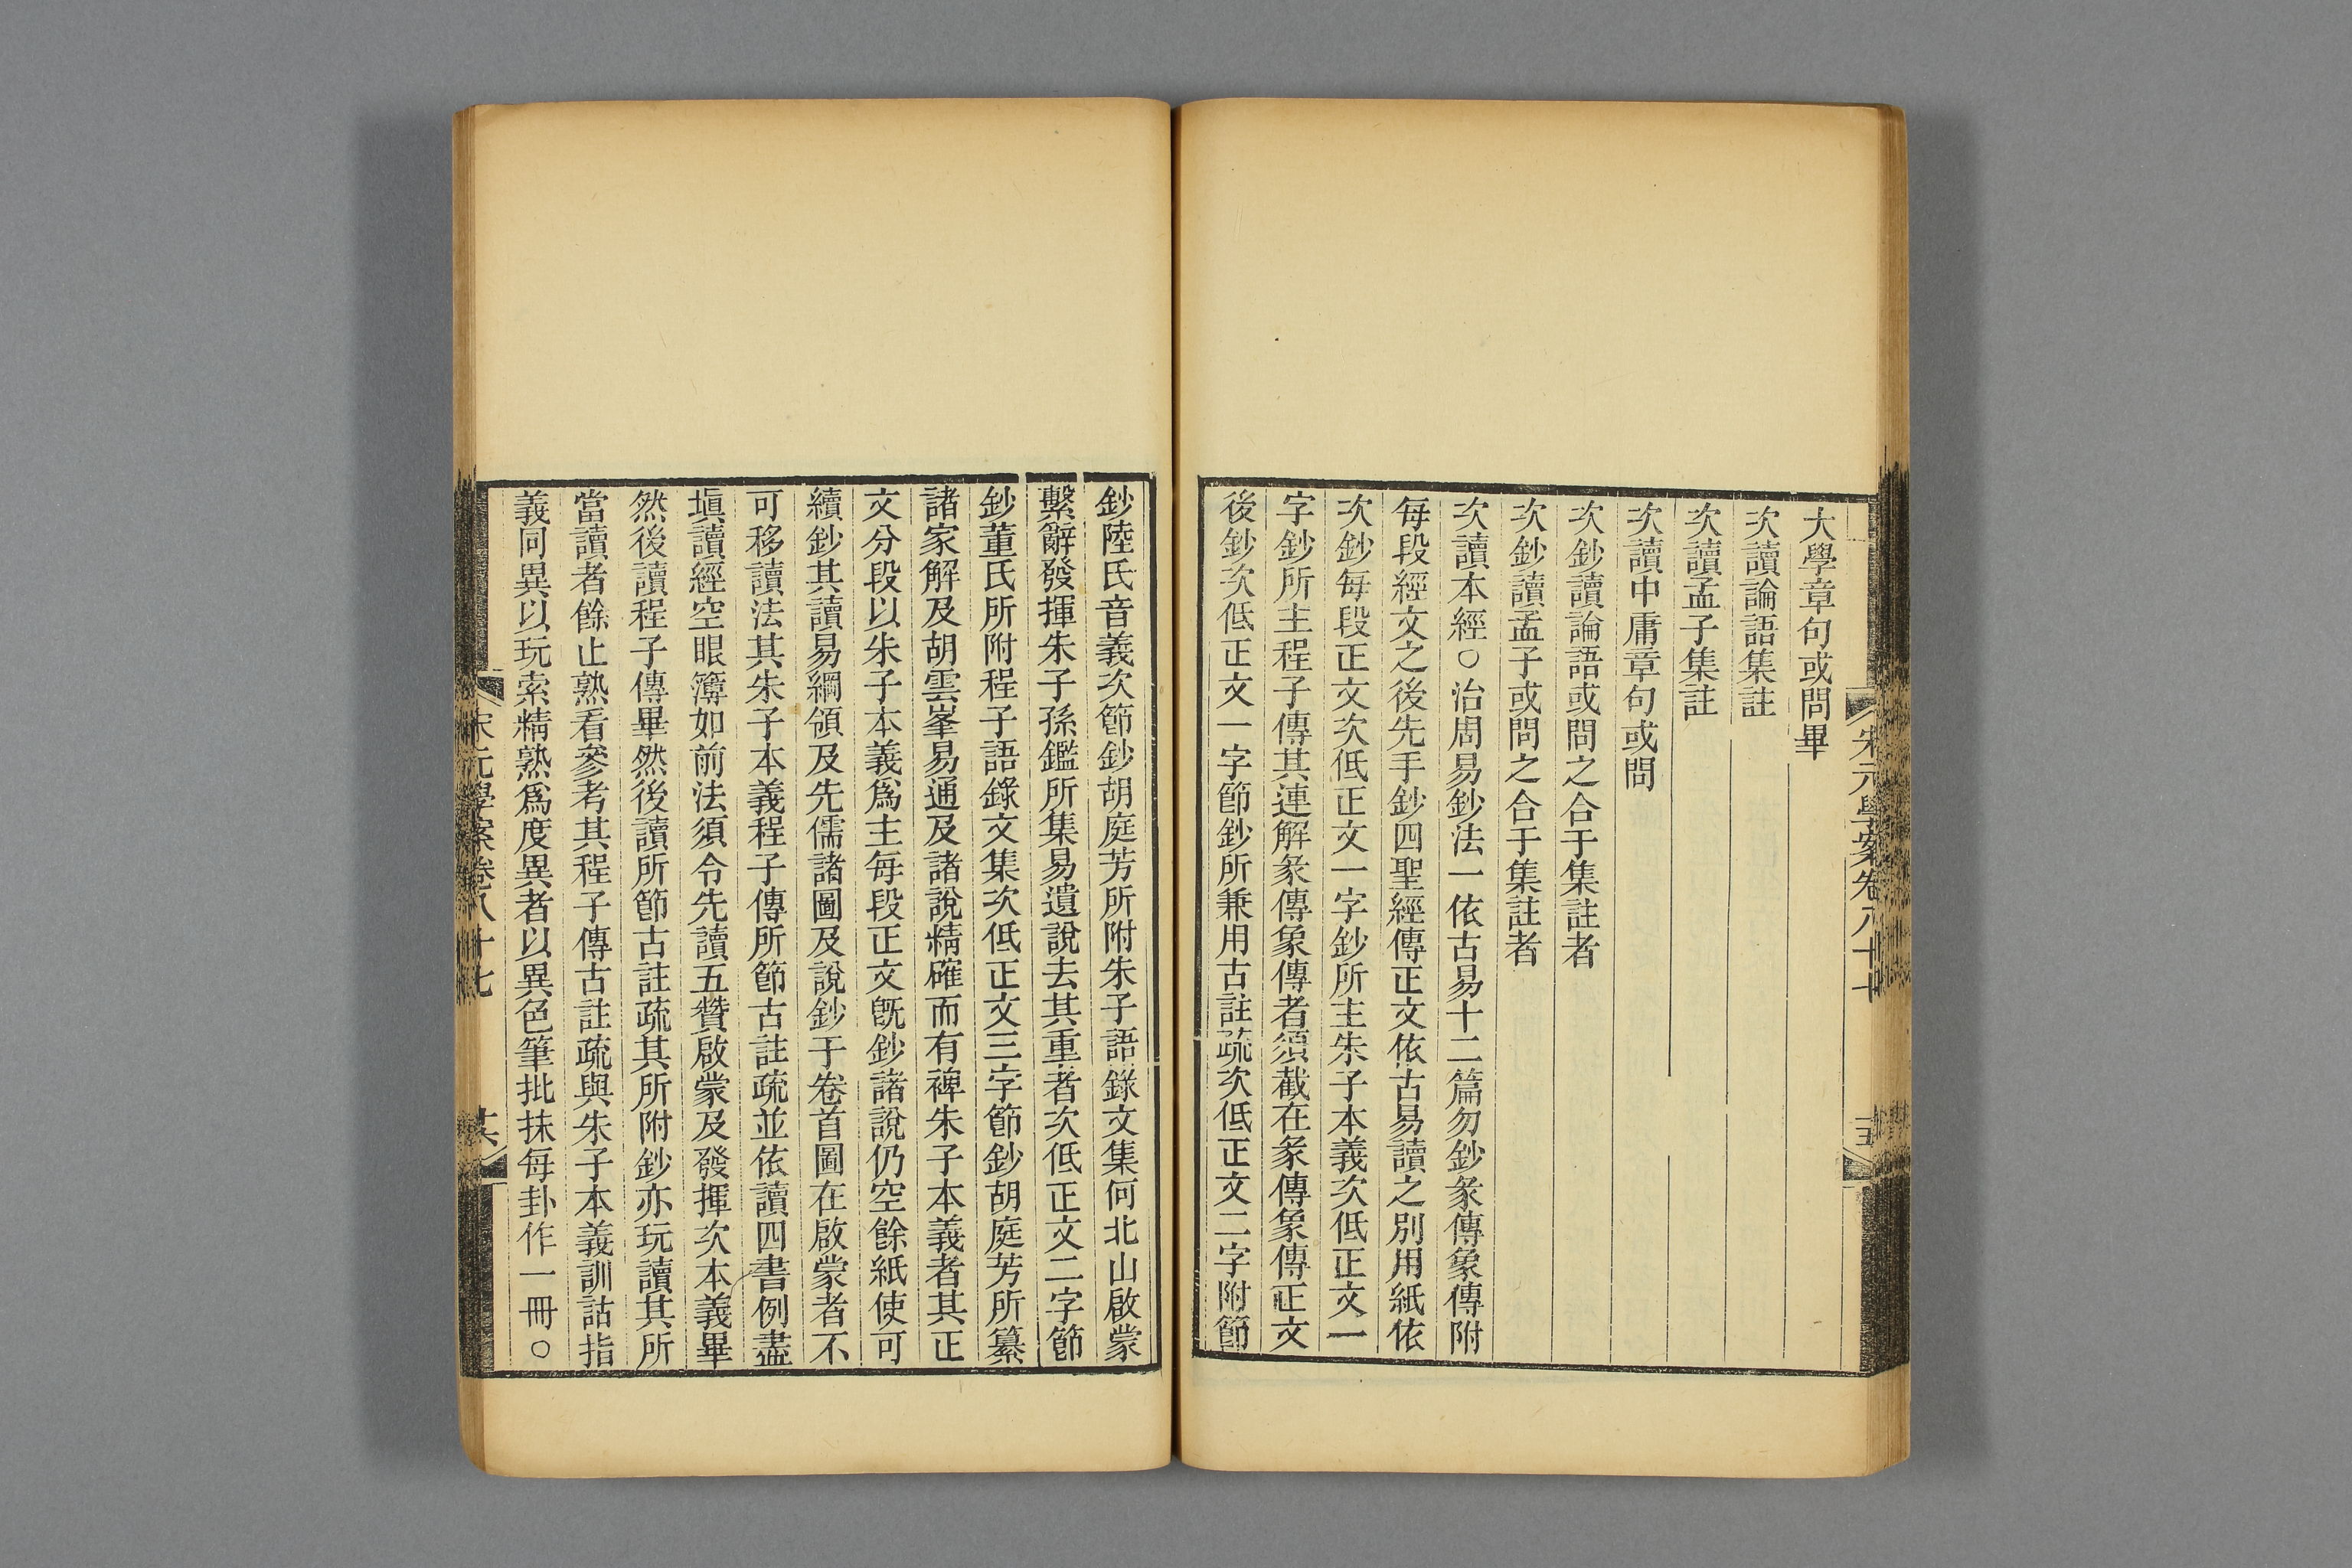 宋元學案卷八十七
大學章句或問畢
次讀論語集註
次讀孟子集註
次讀中庸章句或問
次鈔讀論語或問之合于集註者
次鈔讀孟子或問之合于集註者
次讀本經○治周易鈔法一依古易十二篇勿鈔彖傳象傳附
每段經文之後先手鈔四聖經傳正文依古易讀之別用紙依
次鈔每段正文次低正文一字鈔所主朱子本義次低正文一
字鈔所主程子傳其連解彖傳象傳者須截在彖傳象傳正文
後鈔次低正文一字節鈔所兼用古註疏次低正文二字附節
鈔陸氏音義次節鈔胡庭芳所附朱子語錄文集何北山啟蒙
繫辭發揮朱子孫鑑所集易遺說去其重者次低正文二字節
鈔董氏所附程子語錄文集次低正文三字節鈔胡庭芳所纂
諸家解及胡雲峯易通及諸說精確而有裨朱子本義者其正
文分段以朱子本義爲主每段正文旣鈔諸說仍空餘紙使可
續鈔其讀易綱領及先儒諸圖及說鈔于卷首圖在啟蒙者不
可移讀法其朱子本義程子傳所節古註疏並依讀四書例盡
塡讀經空眼簿如前法須令先讀五贊啟蒙及發揮次本義畢
然後讀程子傳畢然後讀所節古註疏其所附鈔亦玩讀其所
當讀者餘止熟看參考其程子傳古註疏與朱子本義訓詁指
義同異以玩索精熟爲度異者以異色筆批抹每卦作一冊○
宋元學案卷八十七